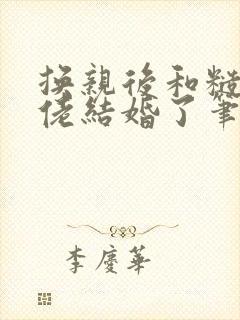 換親後和糙
佬結婚了筆
李慶華